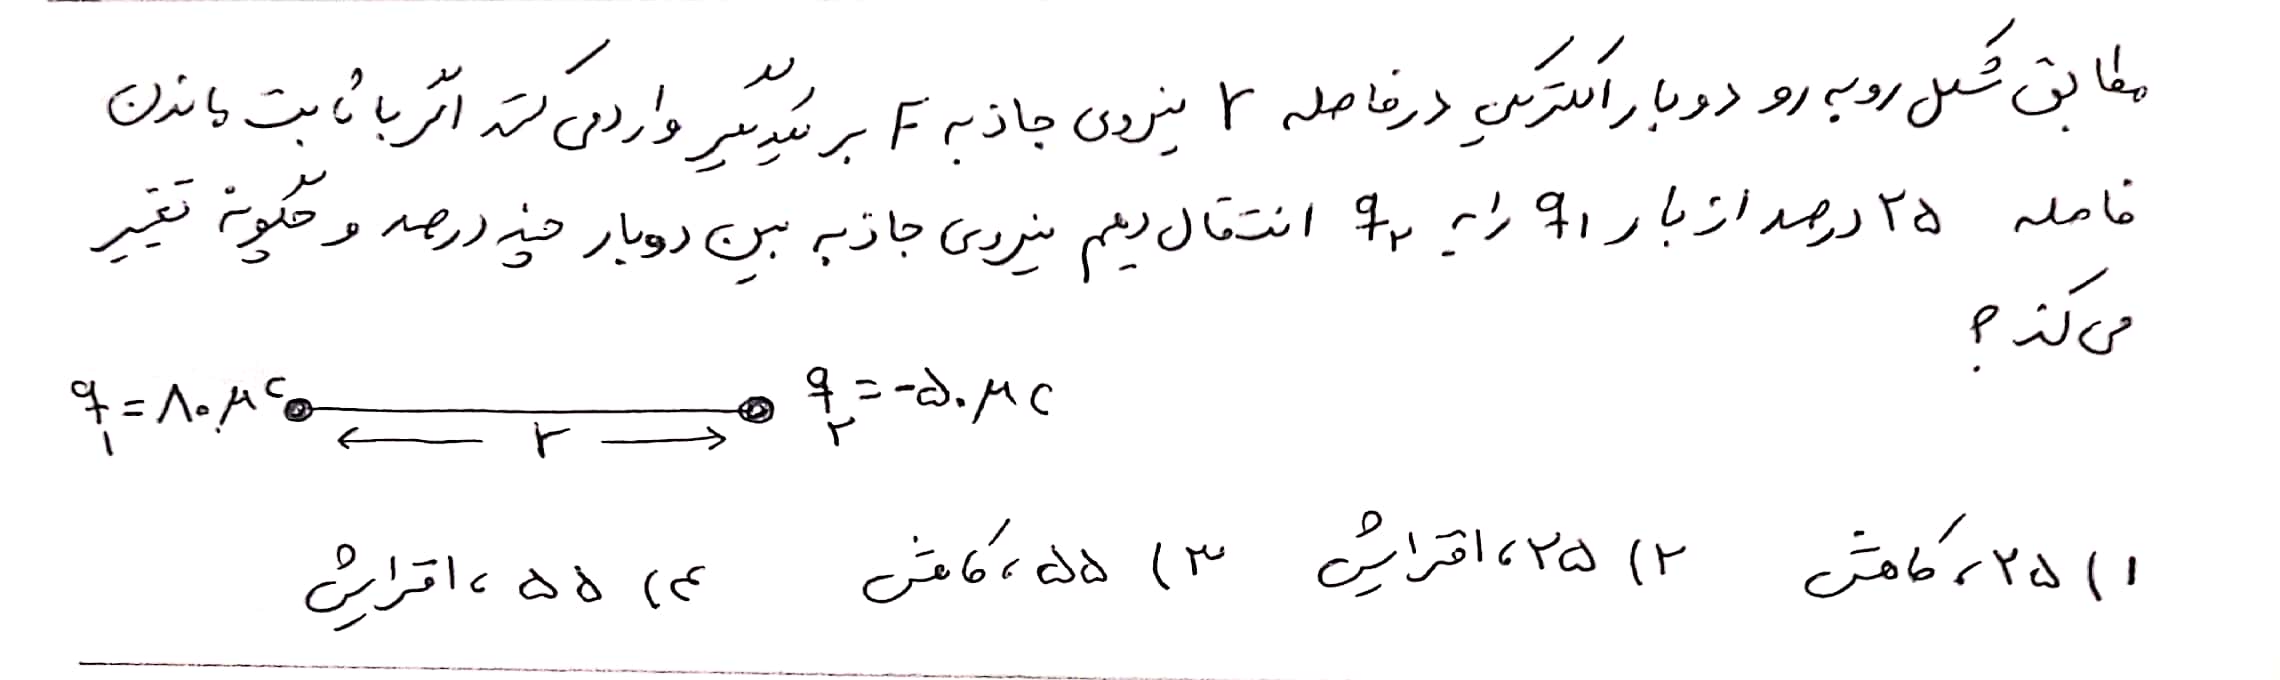 مطابق شکل روبه رو دو بار الکتریکی در فاصله r نیروی جاذبه F بر یکدیگر وارد می کنند اگر با ثابت ماندن
فاصله ۲۵ درصد از بار q₁ را به q₂ انتقال دهیم نیروی جاذبه بین دوبار چند درصد و چگونه تغییر
می کند؟
q₁ = ۸۰ μc r q₂ = -۵۰ μc
۱) ۲۵، کاهش ۲) ۲۵، افزایش ۳) ۵۵، کاهش ۴) ۵۵، افزایش